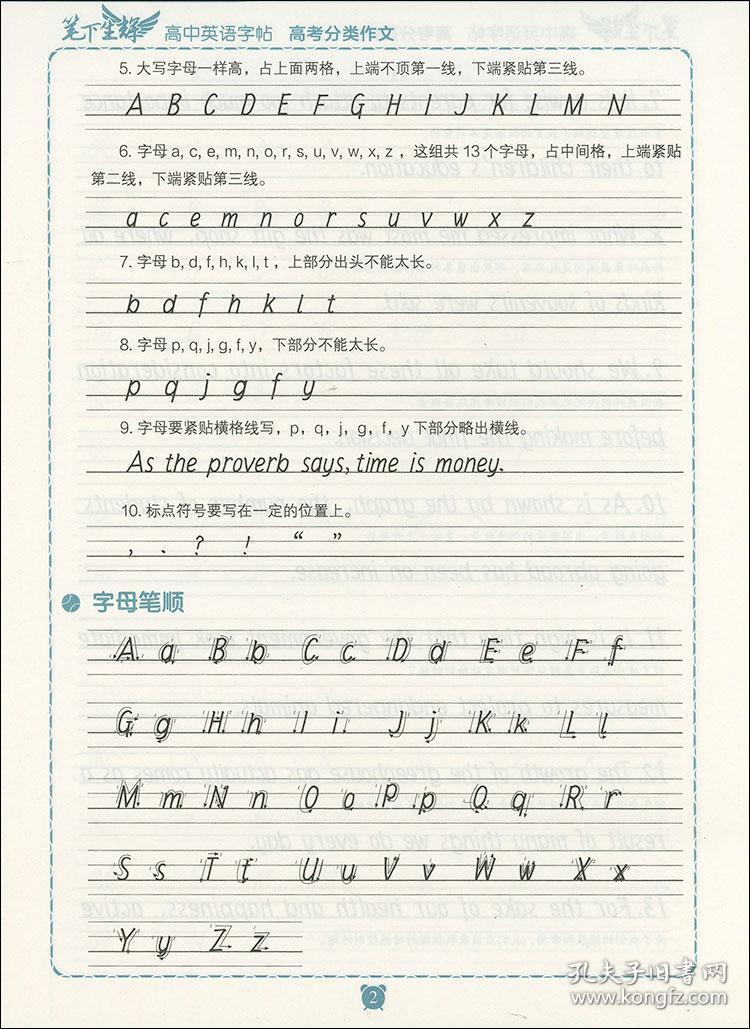 笔下生辉 高中英语字帖 高考分类作文
5. 大写字母一样高，占上面两格，上端不顶第一线，下端紧贴第三线。
A B C D E F G H I J K L M N
6. 字母 a, c, e, m, n, o, r, s, u, v, w, x, z ，这组共 13 个字母，占中间格，上端紧贴
第二线，下端紧贴第三线。
a c e m n o r s u v w x z
7. 字母 b, d, f, h, k, l, t ，上部分出头不能太长。
b d f h k l t
8. 字母 p, q, j, g, f, y，下部分不能太长。
p q j g f y
9. 字母要紧贴横格线写，p，q，j，g，f，y 下部分略出横线。
As the proverb says, time is money.
10. 标点符号要写在一定的位置上。
, . ? ! “ ”
字母笔顺
A a B b C c D d E e F f
G g H h I i J j K k L l
M m N n O o P p Q q R r
S s T t U u V v W w X x
Y y Z z
2
孔夫子旧书网
www.kongfz.com